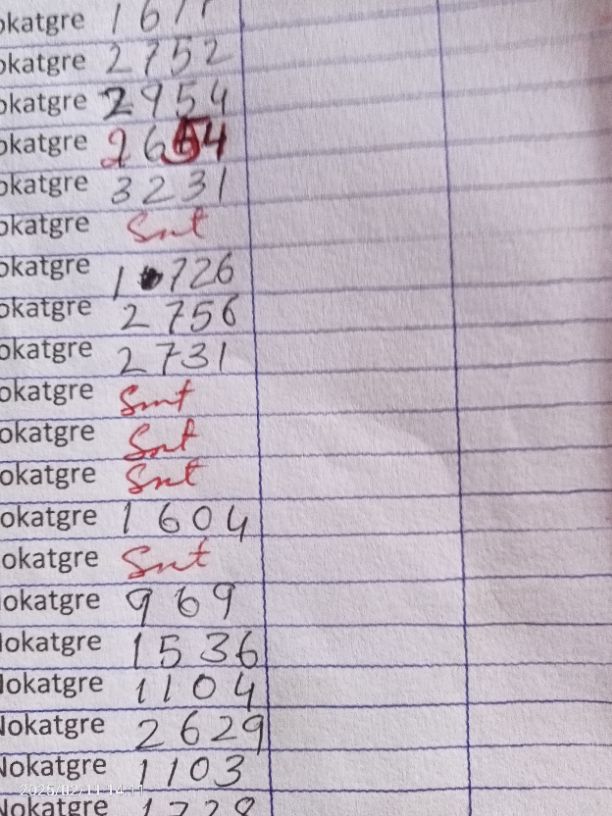 okatgre 1677
okatgre 2752
okatgre 2954
okatgre 2654
okatgre 3231
okatgre Snt
okatgre 1726
okatgre 2756
okatgre 2731
okatgre Smt
okatgre Snt
okatgre Snt
okatgre 1604
okatgre Snt
Nokatgre 969
Nokatgre 1536
Nokatgre 1104
Nokatgre 2629
Nokatgre 1103
Nokatgre 1728